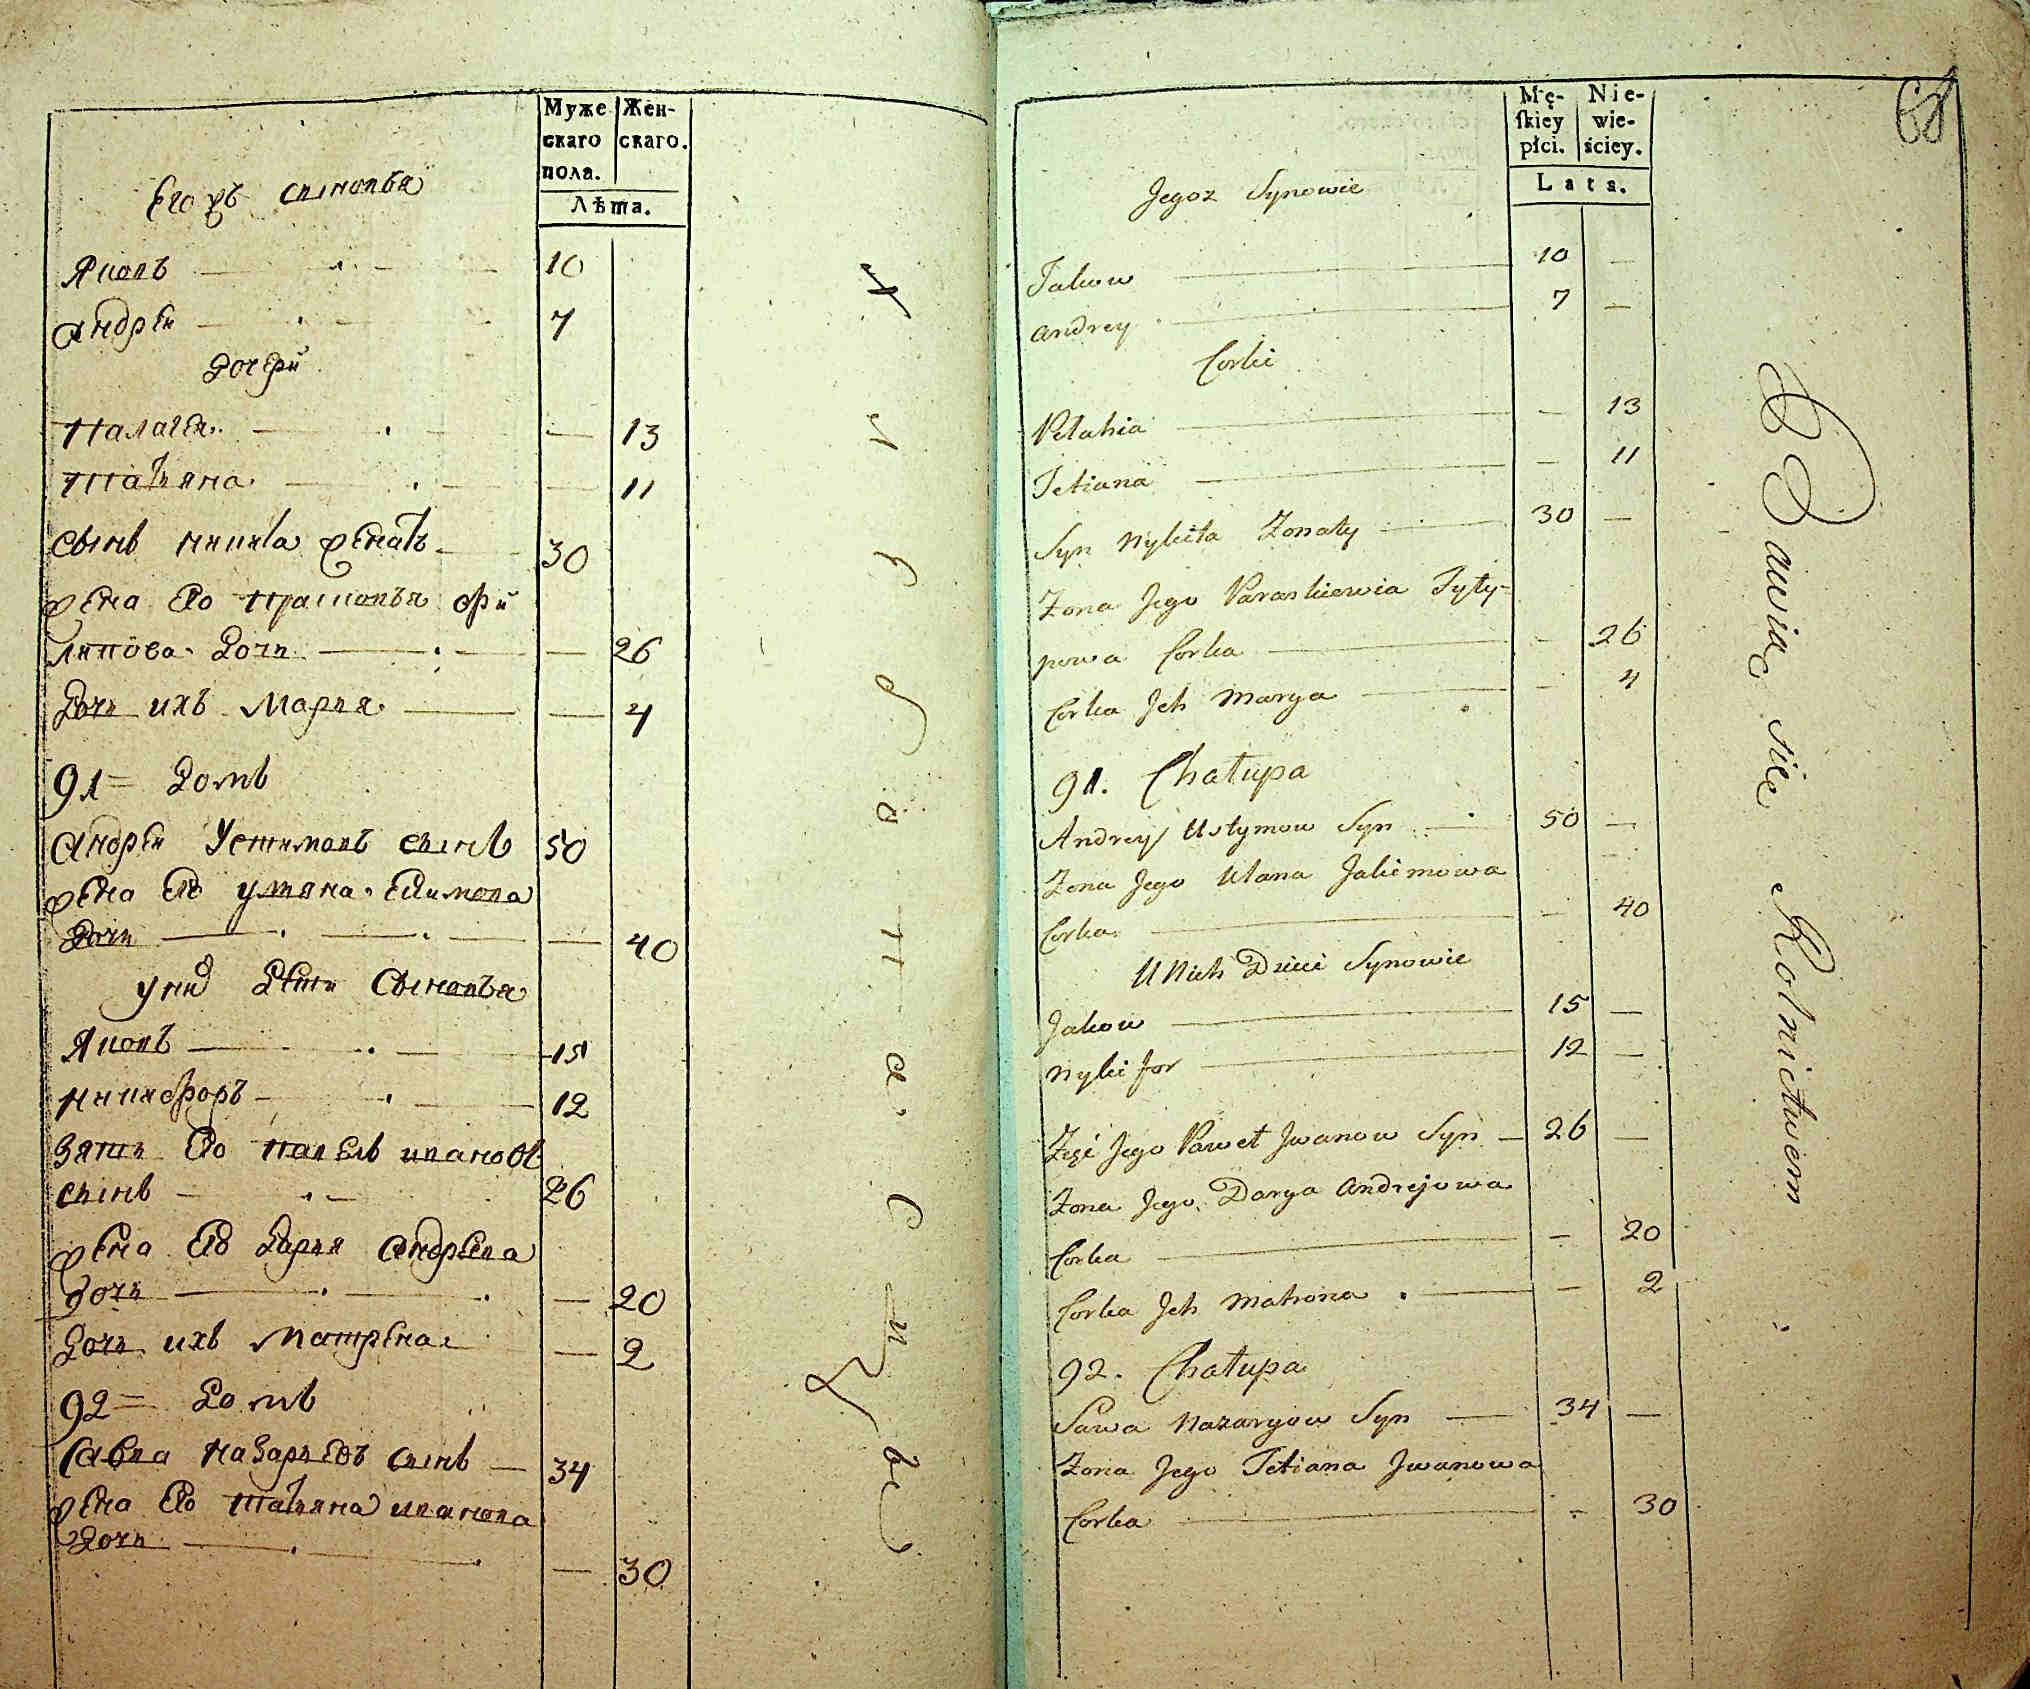 Муже скаго пола.
Жен- скаго.
Лѣта.
Егожъ сыновья
Яковъ 10
Андрей 7
Дочери
Палагея 13
Татьяна 11
Сынъ Никита женатъ 30
жена Его Прасковья Фи
липова Дочь 26
Дочь ихъ Марья 4
91 Домъ
Андрей Устимовъ сынъ 50
жена Его Ульяна Екимова
Дочь 40
у нихъ Дѣти Сыновья
Яковъ 15
Никифоръ 12
Зять Его Павелъ Ивановъ
сынъ 26
жена Его Дарья Андреева
дочь 20
Дочь ихъ Матрена 2
92 Домъ
Савва Назарьевъ сынъ 34
жена Его Татьяна Иванова
Дочь 30
Mę- skiey płci.
Nie- wie- ściey.
Lata.
68
Jegoz Synowie
Jakow 10 —
Andrey 7 —
Corki
Pelahia — 13
Tetiana — 11
Syn Nykita Zonaty 30 —
Zona Jego Paraskiewia Fyly-
powa Corka — 26
Corka Jch Marya — 4
91. Chałupa
Andrey Ustymow Syn 50 —
Zona Jego Ulana Jakimowa
Corka — 40
U Nich Dzieci Synowie
Jakow 15 —
Nykifor 12 —
Zęć Jego Paweł Jwanow Syn 26 —
Zona Jego Darya Andrejowa
Corka — 20
Corka Jch Matrona — 2
92. Chałupa
Sawa Nazaryow Syn 34 —
Zona Jego Tetiana Jwanowa
Corka — 30
Bawią się Rolnictwem